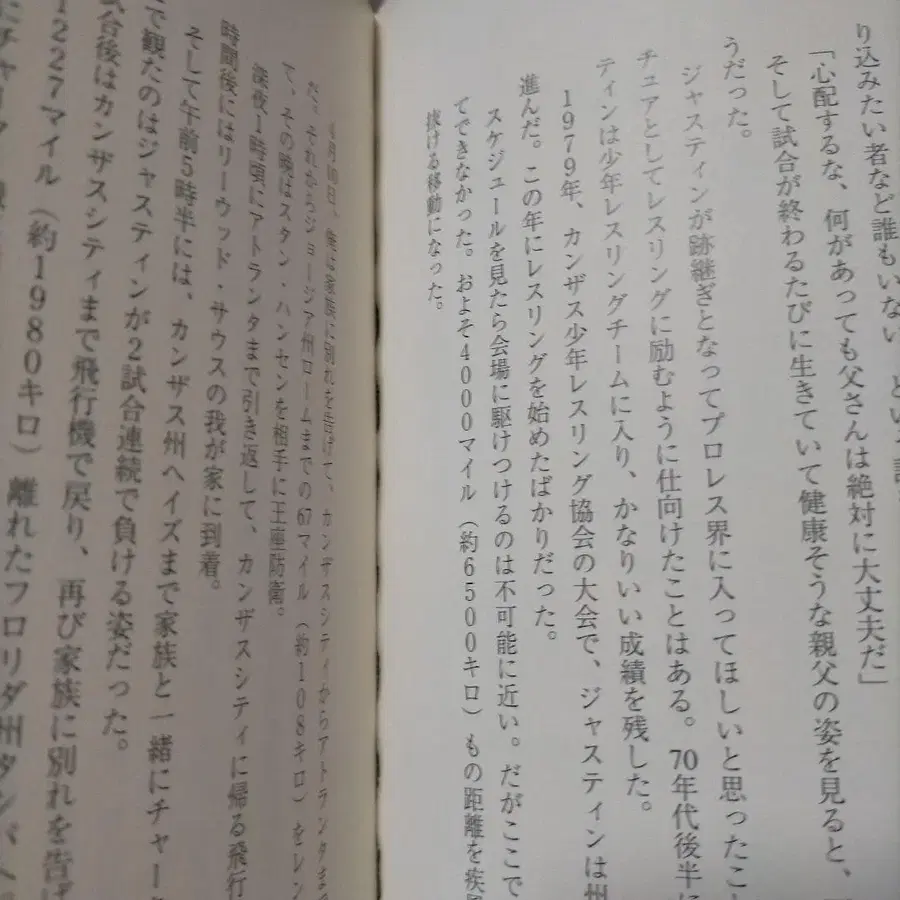 り込みたい者など誰もいない
「心配するな、何があっても父さんは絶対に大丈夫だ」
そして試合が終わるたびに生きていて健康そうな親父の姿を見ると、
うだった。
ジャスティンが跡継ぎとなってプロレス界に入ってほしいと思ったこ
チュアとしてレスリングに励むように仕向けたことはある。70年代後半に
ティンは少年レスリングチームに入り、かなりいい成績を残した。
1979年、カンザス少年レスリング協会の大会で、ジャスティンは州
進んだ。この年にレスリングを始めたばかりだった。
スケジュールを見たら会場に駆けつけるのは不可能に近い。だがここで
てできなかった。およそ4000マイル（約6500キロ）もの距離を疾
抜ける移動になった。
月10日、俺は家族に別れを告げて、カンザスシティからアトランタま
だ。それからジョージア州ロームまでの67マイル（約108キロ）をレン
て、その晩はスタン・ハンセンを相手に王座防衛。
深夜1時頃にアトランタまで引き返して、カンザスシティに帰る飛行
時間後にはリーウッド・サウスの我が家に到着。
そして午前5時半には、カンザス州ヘイズまで家族と一緒にチャー
で観たのはジャスティンが2試合連続で負ける姿だった。
試合後はカンザスシティまで飛行機で戻り、再び家族に別れを告げ
1227マイル（約1980キロ）離れたフロリダ州タンパへ
にチャー